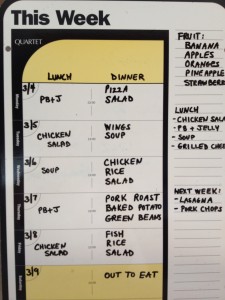 This Week
QUARTET
LUNCH DINNER
Monday
3/4
PB+J
PIZZA
SALAD
Tuesday
3/5
CHICKEN
SALAD
WINGS
SOUP
Wednesday
3/6
SOUP
CHICKEN
RICE
SALAD
Thursday
3/7
PB+J
PORK ROAST
BAKED POTATO
GREEN BEANS
Friday
3/8
CHICKEN
SALAD
FISH
RICE
SALAD
Saturday
3/9
OUT TO EAT
FRUIT:
BANANA
APPLES
ORANGES
PINEAPPLE
STRAWBERR
LUNCH
- CHICKEN SALA
- PB + JELLY
- SOUP
- GRILLED CHEE
NEXT WEEK:
- LASAGNA
- PORK CHOPS